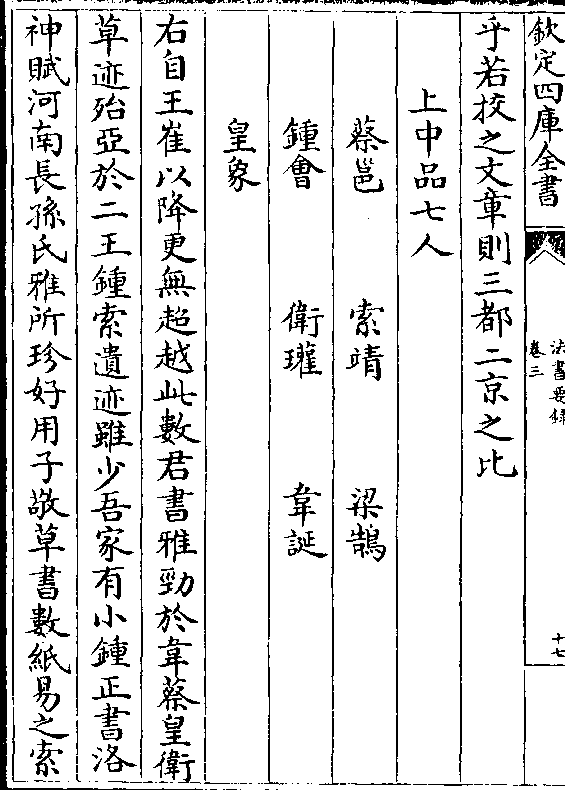 欽定四庫全書
法書要錄
卷三
十七
乎若挍之文章則三都二京之比
上中品七人
蔡邕　索靖　梁鵠
鍾會　衛瓘　韋誕
皇象
右自王崔以降更無超越此數君書雅勁於韋蔡皇衛
草迹殆亞於二王鍾索遺迹雖少吾家有小鍾正書洛
神賦河南長孫氏雅所珍好用子敬草書數紙易之索